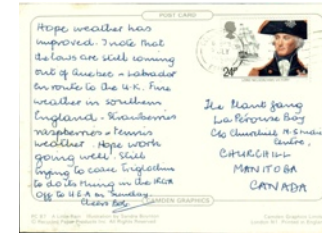 POST CARD
Hope weather has
improved. I note that
the lows are still coming
out of Quebec + Labrador
en route to the U.K. Fine
weather in southern
England - Strawberries
raspberries + tennis
weather. Hope work
going well. Still
trying to coax
to do its thing in the
Off to U.E.A. on Sunday.
Cheers Bob
24p
The Plant Gang
La Perouse Bay
c/o Churchill N. Studies
Centre,
CHURCHILL
MANITOBA
CANADA
CAMDEN GRAPHICS